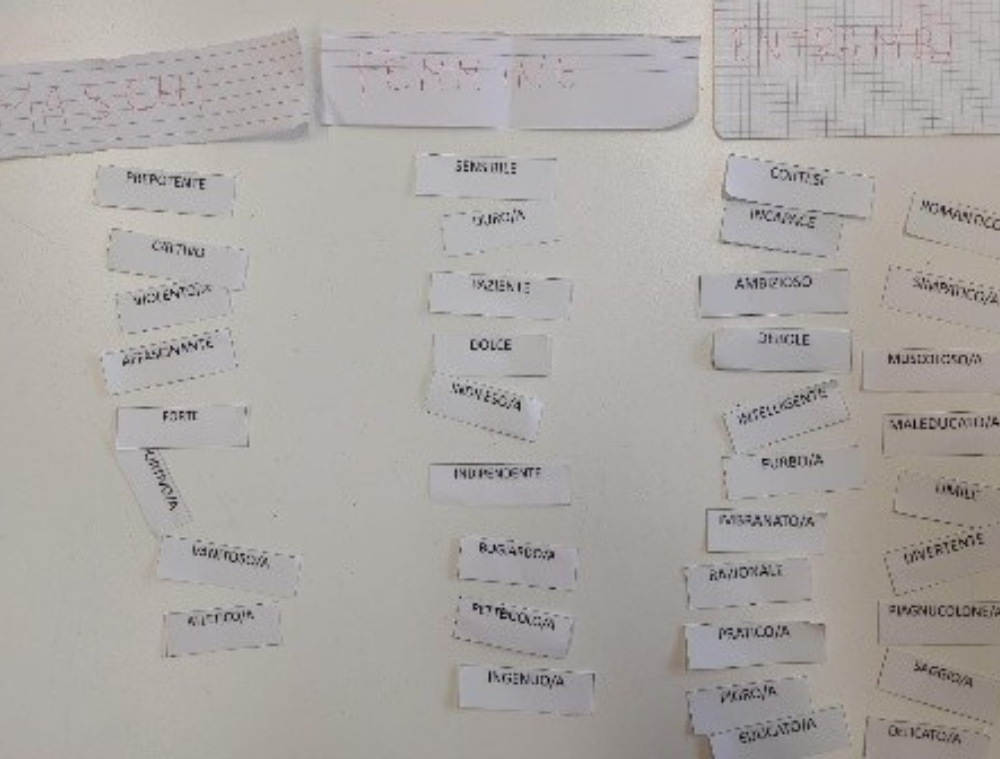 MASCHI
FEMMINE
ENTRAMBI
PREPOTENTE
CATTIVO
VIOLENTO/A
AFFASCINANTE
FORTE
SPORTIVO/A
VANITOSO/A
ATLETICO/A
SENSIBILE
DURO/A
PAZIENTE
DOLCE
INDIFESO/A
INDIPENDENTE
BUGIARDO/A
PETTEGOLO/A
INGENUO/A
CORTESE
INCAPACE
AMBIZIOSO
DEBOLE
INTELLIGENTE
FURBO/A
IMBRANATO/A
RAZIONALE
PRATICO/A
PIGRO/A
EDUCATO/A
ROMANTICO
SIMPATICO/A
MUSCOLOSO/A
MALEDUCATO/A
UMILE
DIVERTENTE
PIAGNUCOLONE/A
SAGGIO/A
DELICATO/A